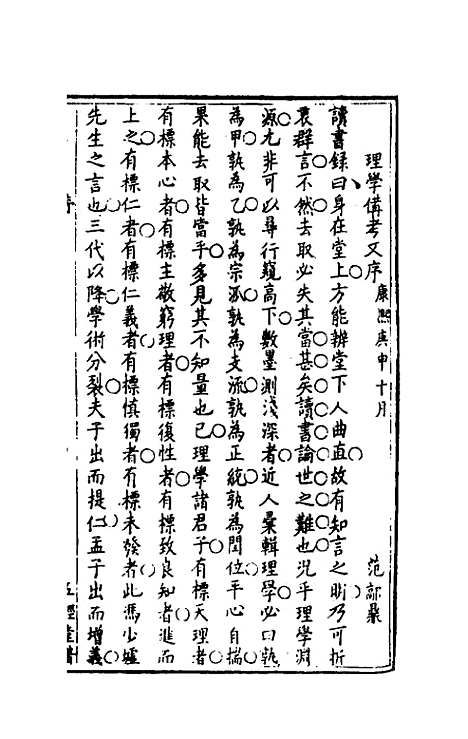 理學備考又序 康熙庚申十月 范鄗鼎
讀書録曰身在堂上方能辨堂下人曲直故有知言之明乃可折
衷群言不然去取必失其當甚矣讀書論世之難也况乎理學淵
源尤非可以尋行窺高下數墨測淺深者近人彙輯理學必曰孰
為甲孰為乙孰為宗派孰為支流孰為正統孰為閏位平心自揣
果能去取皆當乎多見其不知量也已理學諸君子有標天理者
有標本心者有標主敬窮理者有標復性者有標致良知者進而
上之有標仁者有標仁義者有標慎獨者有標未發者此馮少墟
先生之言也三代以降學術分裂夫子出而提仁孟子出而增義
序 五經堂